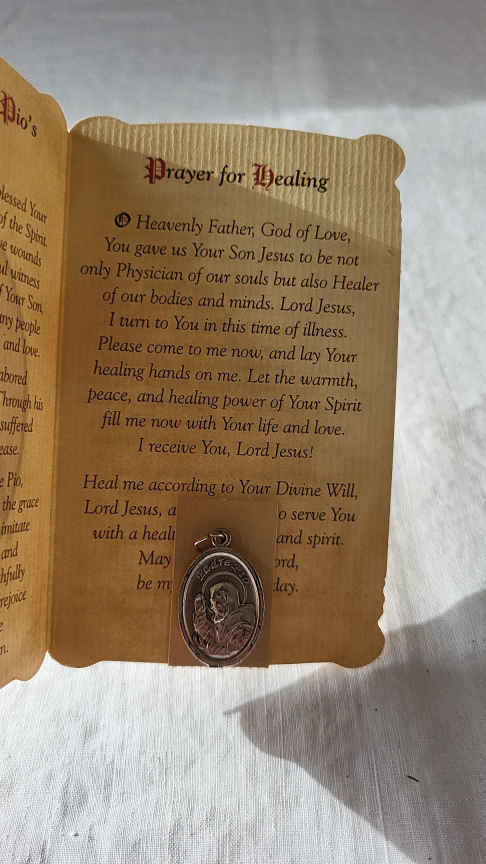 Pio's
blessed Your
of the Spirit
wounds
witness
Your Son,
people
and love.
Through his
suffered
Pio,
the grace
imitate
and
rejoice
Prayer for Healing
O Heavenly Father, God of Love,
You gave us Your Son Jesus to be not
only Physician of our souls but also Healer
of our bodies and minds. Lord Jesus,
I turn to You in this time of illness.
Please come to me now, and lay Your
healing hands on me. Let the warmth,
peace, and healing power of Your Spirit
fill me now with Your life and love.
I receive You, Lord Jesus!
Heal me according to Your Divine Will,
Lord Jesus, a o serve You
with a heal and spirit.
May ord,
be m day.